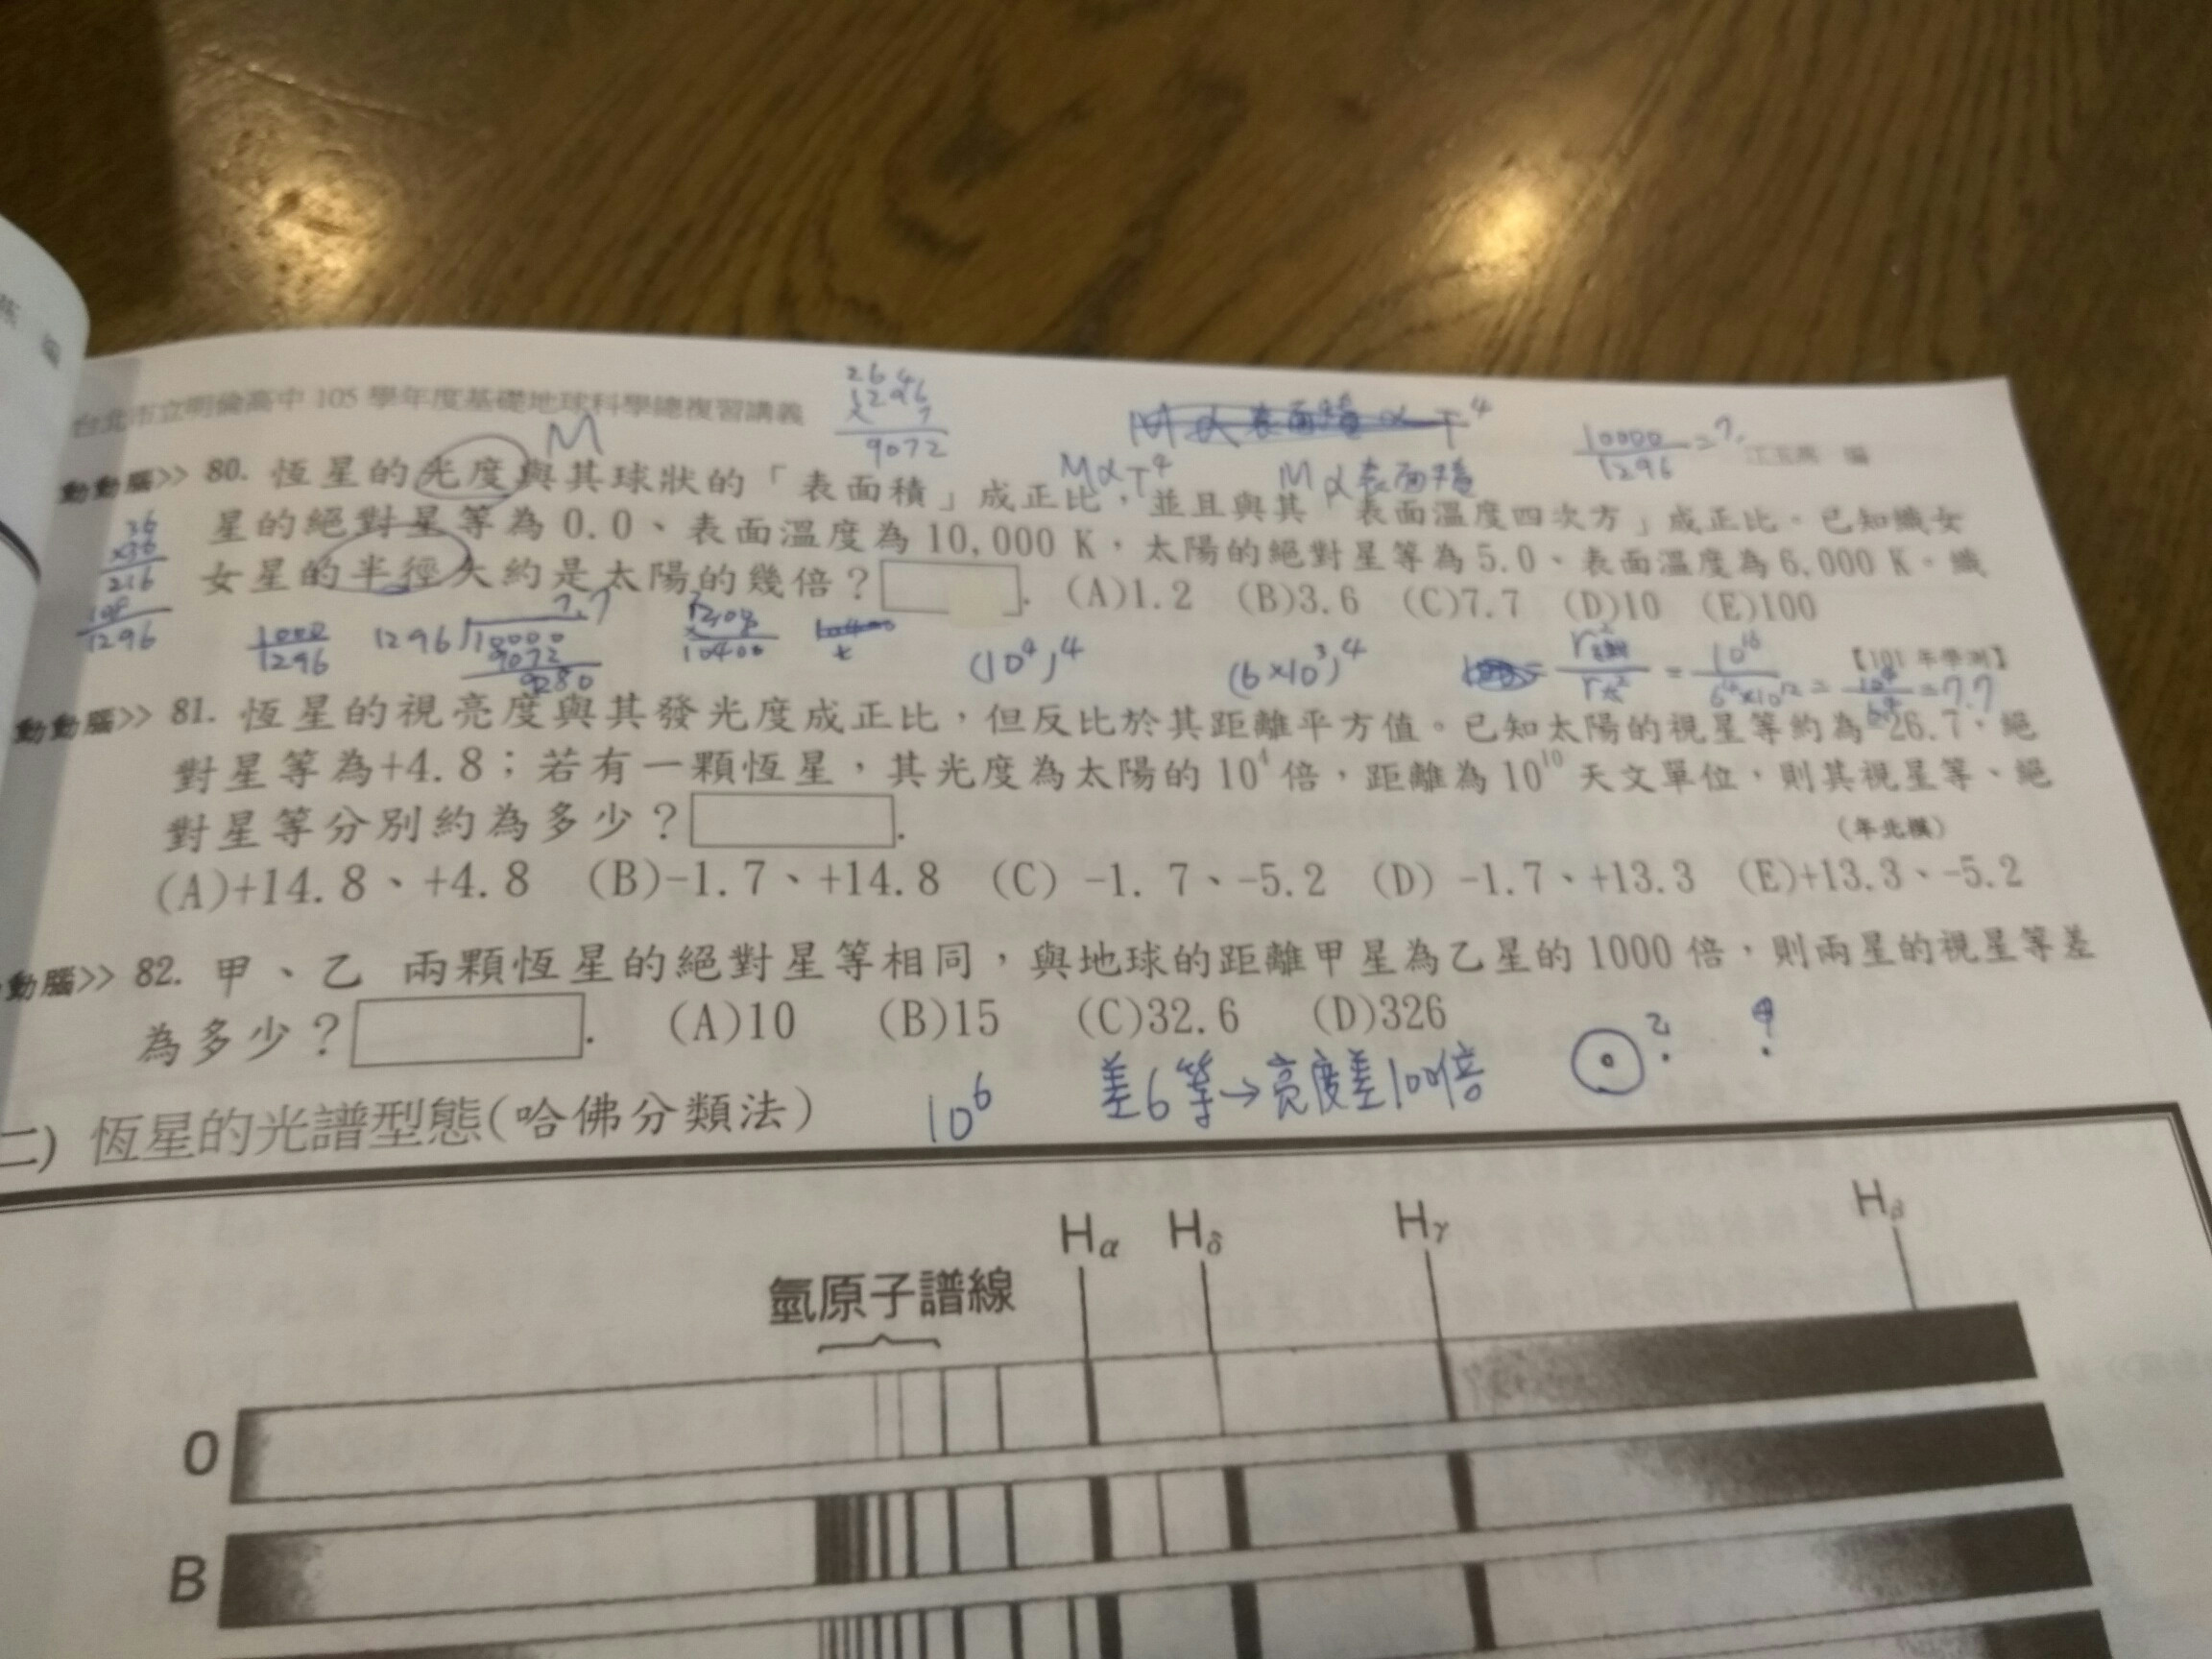 台北市立明倫高中 105 學年度基礎地球科學總複習講義
264
1296
× 7
9072
M ∝ 表面積 ∝ T⁴
10000/1296 = ?
編
M
M∝T⁴
M ∝ 表面積
動動腦>> 80. 恆星的光度與其球狀的「表面積」成正比，並且與其「表面溫度四次方」成正比。已知織女
星的絕對星等為 0.0、表面溫度為 10,000 K，太陽的絕對星等為 5.0、表面溫度為 6,000 K。織
女星的半徑大約是太陽的幾倍？ . (A)1.2 (B)3.6 (C)7.7 (D)10 (E)100
36
×36
216
108
1296
1000/1296
7.7
1296 10000
9072
9280
10400
(10⁴)⁴
(6×10³)⁴
= 10¹⁶/6⁴×10¹² = 10⁴/6⁴ = 7.7
【101 年學測】
動動腦>> 81. 恆星的視亮度與其發光度成正比，但反比於其距離平方值。已知太陽的視星等約為-26.7，絕
對星等為+4.8；若有一顆恆星，其光度為太陽的 10⁴ 倍，距離為 10¹⁰ 天文單位，則其視星等、絕
對星等分別約為多少？ .
(年北模)
(A)+14.8、+4.8 (B)-1.7、+14.8 (C) -1.7、-5.2 (D) -1.7、+13.3 (E)+13.3、-5.2
動腦>> 82. 甲、乙 兩顆恆星的絕對星等相同，與地球的距離甲星為乙星的 1000 倍，則兩星的視星等差
為多少？ . (A)10 (B)15 (C)32.6 (D)326
10⁶
差6等→亮度差100倍
?
?
二) 恆星的光譜型態(哈佛分類法)
Hα Hδ Hγ Hβ
氫原子譜線
O
B